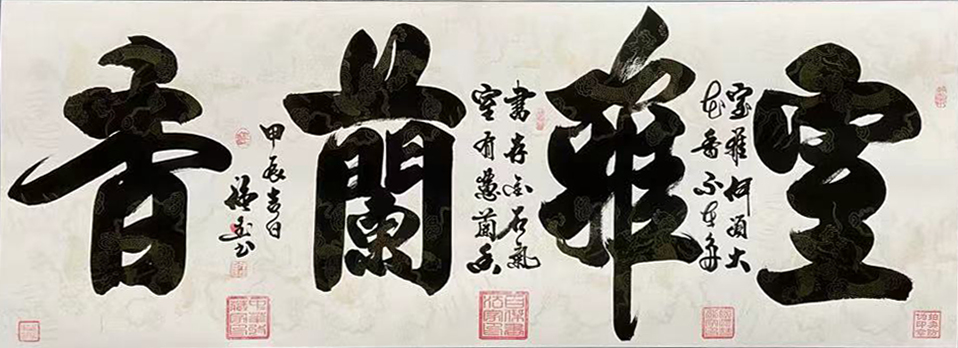 室雅蘭香
室雅何須大
花香不在多
書存金石氣
室有蕙蘭香
甲辰春日